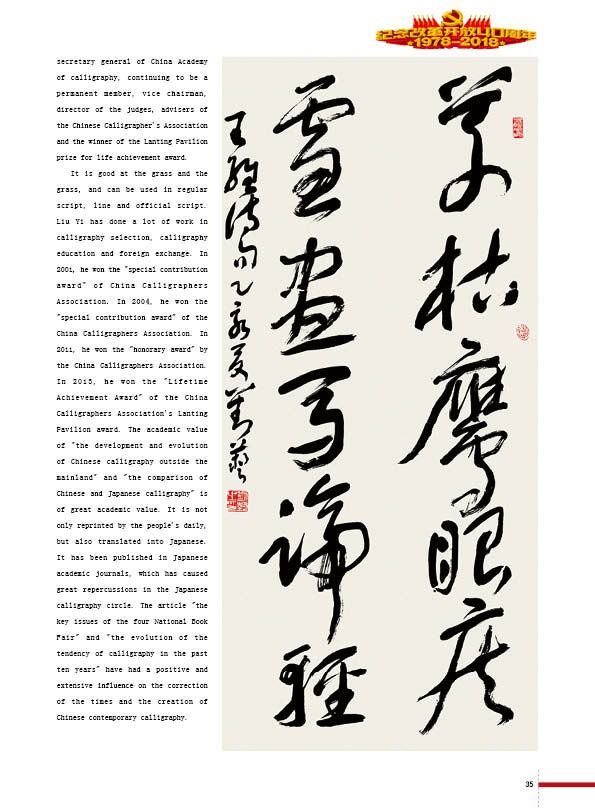 纪念改革开放40周年
1978-2018
secretary general of China Academy
of calligraphy, continuing to be a
permanent member, vice chairman,
director of the judges, advisers of
the Chinese Calligrapher's Association
and the winner of the Lanting Pavilion
prize for life achievement award.
It is good at the grass and the
grass, and can be used in regular
script, line and official script.
Liu Yi has done a lot of work in
calligraphy selection, calligraphy
education and foreign exchange. In
2001, he won the "special contribution
award" of China Calligraphers
Association. In 2004, he won the
"special contribution award" of the
China Calligraphers Association. In
2011, he won the "honorary award" by
the China Calligraphers Association.
In 2015, he won the "Lifetime
Achievement Award" of the China
Calligraphers Association's Lanting
Pavilion award. The academic value
of "the development and evolution
of Chinese calligraphy outside the
mainland" and "the comparison of
Chinese and Japanese calligraphy" is
of great academic value. It is not
only reprinted by the people's daily,
but also translated into Japanese.
It has been published in Japanese
academic journals, which has caused
great repercussions in the Japanese
calligraphy circle. The article "the
key issues of the four National Book
Fair" and "the evolution of the
tendency of calligraphy in the past
ten years" have had a positive and
extensive influence on the correction
of the times and the creation of
Chinese contemporary calligraphy.
草枯鷹眼疾
雪盡馬蹄輕
王維詩句乙亥夏劉藝
35